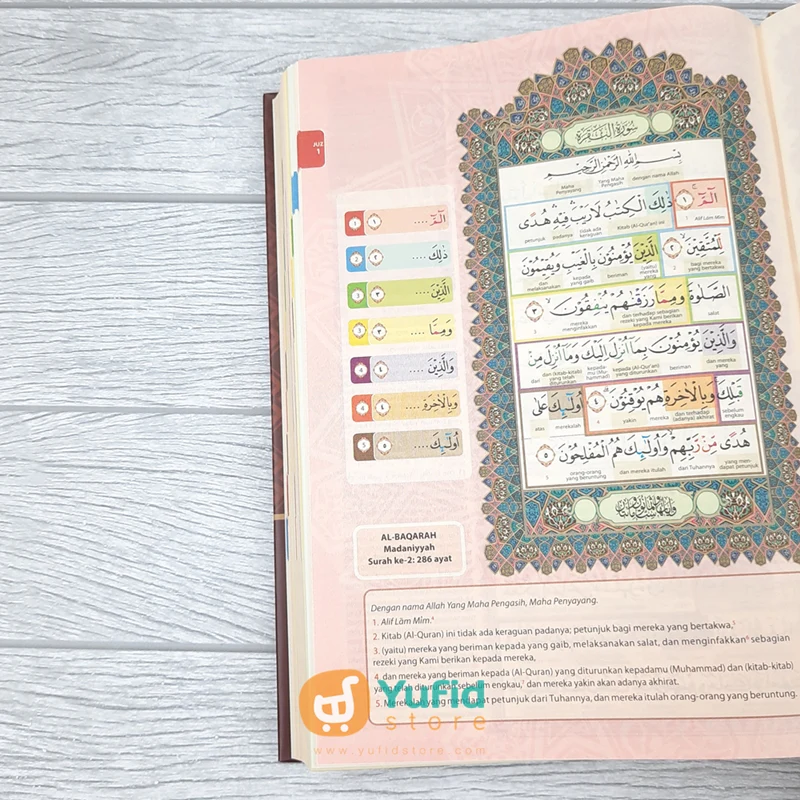 JUZ
1
سُورَةُ الْبَقَرَةِ
بِسْمِ اللّٰهِ الرَّحْمٰنِ الرَّحِيْمِ
dengan nama Allah
Yang Maha Pengasih
Maha Penyayang
الۤمّۤ ۚ ١ ذٰلِكَ الْكِتٰبُ لَا رَيْبَ ۛ فِيْهِ ۛ هُدًى
1 Alif Lām Mīm
Kitab (Al-Qur'an) ini
tidak ada keraguan
padanya
petunjuk
لِّلْمُتَّقِيْنَ ۙ ٢ الَّذِيْنَ يُؤْمِنُوْنَ بِالْغَيْبِ وَيُقِيْمُوْنَ
bagi mereka yang bertakwa
2
(yaitu) mereka yang
beriman
kepada yang gaib
dan melaksanakan
الصَّلٰوةَ وَمِمَّا رَزَقْنٰهُمْ يُنْفِقُوْنَ ۙ ٣
salat
dan terhadap sebagian rezeki yang Kami berikan kepada mereka
mereka menginfakkan
3
وَالَّذِيْنَ يُؤْمِنُوْنَ بِمَآ اُنْزِلَ اِلَيْكَ وَمَآ اُنْزِلَ مِنْ
dan mereka yang
beriman
kepada (Al-Qur'an) yang diturunkan
kepadamu (Muhammad)
dan (kitab-kitab) yang telah diturunkan
dari
قَبْلِكَ ۚ وَبِالْاٰخِرَةِ هُمْ يُوْقِنُوْنَ ۗ ٤ اُولٰۤىِٕكَ عَلٰى
sebelum engkau
dan terhadap (adanya) akhirat
mereka
yakin
4
merekalah
atas
هُدًى مِّنْ رَّبِّهِمْ ۙ وَاُولٰۤىِٕكَ هُمُ الْمُفْلِحُوْنَ ٥
yang mendapat petunjuk
dari Tuhannya
dan mereka itulah
orang-orang yang beruntung
5
١ الۤمّۤ ....
٢ ذٰلِكَ ....
٣ الَّذِيْنَ ....
٣ وَمِمَّا ....
٤ وَالَّذِيْنَ ....
٤ وَبِالْاٰخِرَةِ ....
٥ اُولٰۤىِٕكَ ....
AL-BAQARAH
Madaniyyah
Surah ke-2: 286 ayat
Dengan nama Allah Yang Maha Pengasih, Maha Penyayang.
1. Alif Lām Mīm.⁴
2. Kitab (Al-Quran) ini tidak ada keraguan padanya; petunjuk bagi mereka yang bertakwa,⁵
3. (yaitu) mereka yang beriman kepada yang gaib, melaksanakan salat, dan menginfakkan⁶ sebagian
rezeki yang Kami berikan kepada mereka,
4. dan mereka yang beriman kepada (Al-Quran) yang diturunkan kepadamu (Muhammad) dan (kitab-kitab)
yang telah diturunkan sebelum engkau,⁷ dan mereka yakin akan adanya akhirat.
5. Merekalah yang mendapat petunjuk dari Tuhannya, dan mereka itulah orang-orang yang beruntung.
Yufid
store
www.yufidstore.com